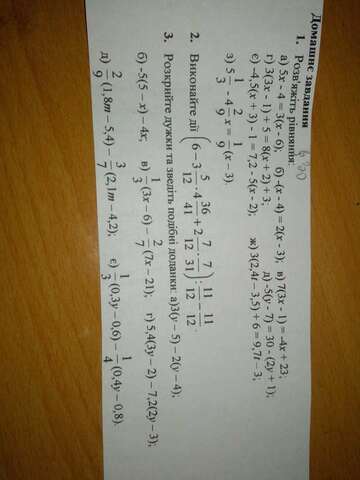 Домашнє завдання
1. Розв'яжіть рівняння:
а) 5x - 4 = 3(x - 6); б) -(x - 4) = 2(x - 3); в) 7(3x - 1) = -4x + 23;
г) 3(3x - 1) + 5 = 8(x + 2) + 3; д) -5(y - 7) = 30 - (2y + 1);
є) -4,5(x + 3) - 1 = 7,2 - 3(x - 2); ж) 3(2,4t - 3,5) + 6 = 9,7t - 3;
з) 5 1/3 - 4 2/9 x = 1/9 (x - 3).
2. Виконайте дії (6 - 3 5/12 · 4 36/41 + 2 7/12 · 7/31) : 11/12 - 11/12.
3. Розкрийте дужки та зведіть подібні доданки: а) 3(y - 5) - 2(y - 4);
б) -5(5 - x) - 4x; в) 1/3 (3x - 6) - 2/7 (7x - 21); г) 5,4(3y - 2) - 7,2(2y - 3);
д) 2/9 (1,8m - 5,4) - 3/7 (2,1m - 4,2); є) 1/3 (0,3y - 0,6) - 1/4 (0,4y - 0,8).